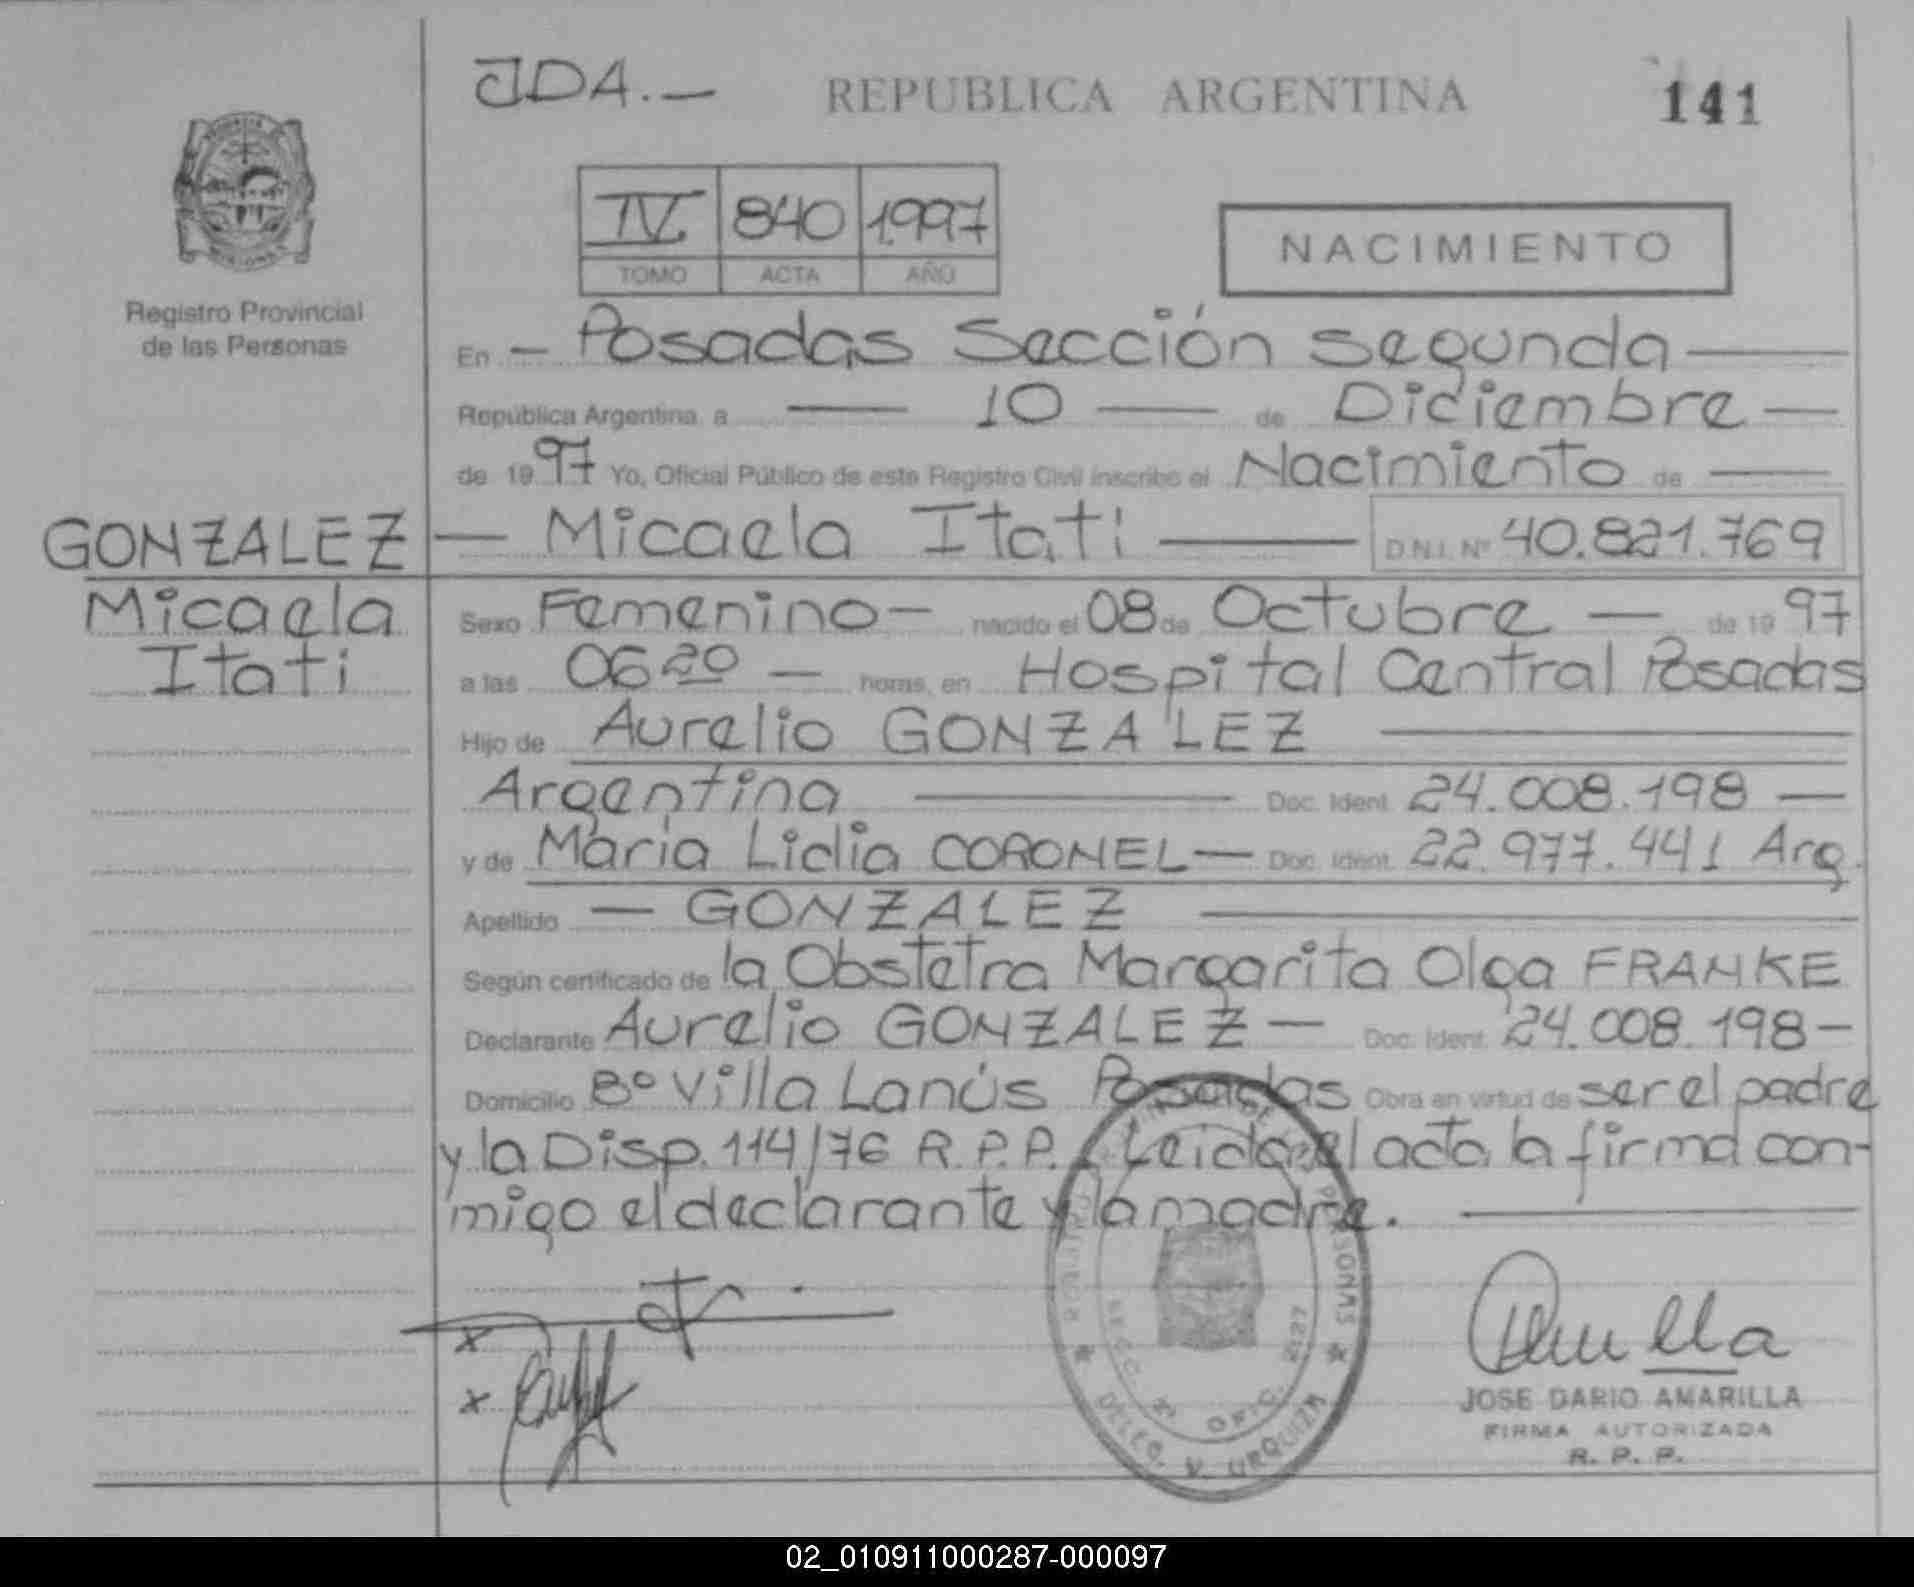 JDA.— REPUBLICA ARGENTINA 141
IV. 840 1.997
TOMO ACTA AÑO
NACIMIENTO
Registro Provincial
de las Personas
En — Posadas Sección Segunda —
República Argentina, a — 10 — de Diciembre —
de 1997 Yo, Oficial Público de este Registro Civil inscribo el Nacimiento de —
GONZALEZ
Micaela
Itati
— Micaela Itati — D.N.I. Nº 40.821.769
Sexo Femenino — nacido el 08 de Octubre — de 1997
a las 06 20 — horas, en Hospital Central Posadas
Hijo de Aurelio GONZALEZ —
Argentina — Doc. Ident. 24.008.198 —
y de Maria Lidia CORONEL — Doc. Ident. 22.977.441 Arg.
Apellido — GONZALEZ —
Según certificado de la Obstetra Margarita Olga FRANKE
Declarante Aurelio GONZALEZ — Doc. Ident. 24.008.198 —
Domicilio Bº Villa Lanús Posadas Obra en virtud de ser el padre
y la Disp. 114/76 R.P.P. Leida el acta la firma con-
migo el declarante y la madre. —
x
x
DE LAS PERSONAS
SECC. OFIC.
DELEG. V. URQUIZA
JOSE DARIO AMARILLA
FIRMA AUTORIZADA
R. P. P.
02_010911000287-000097